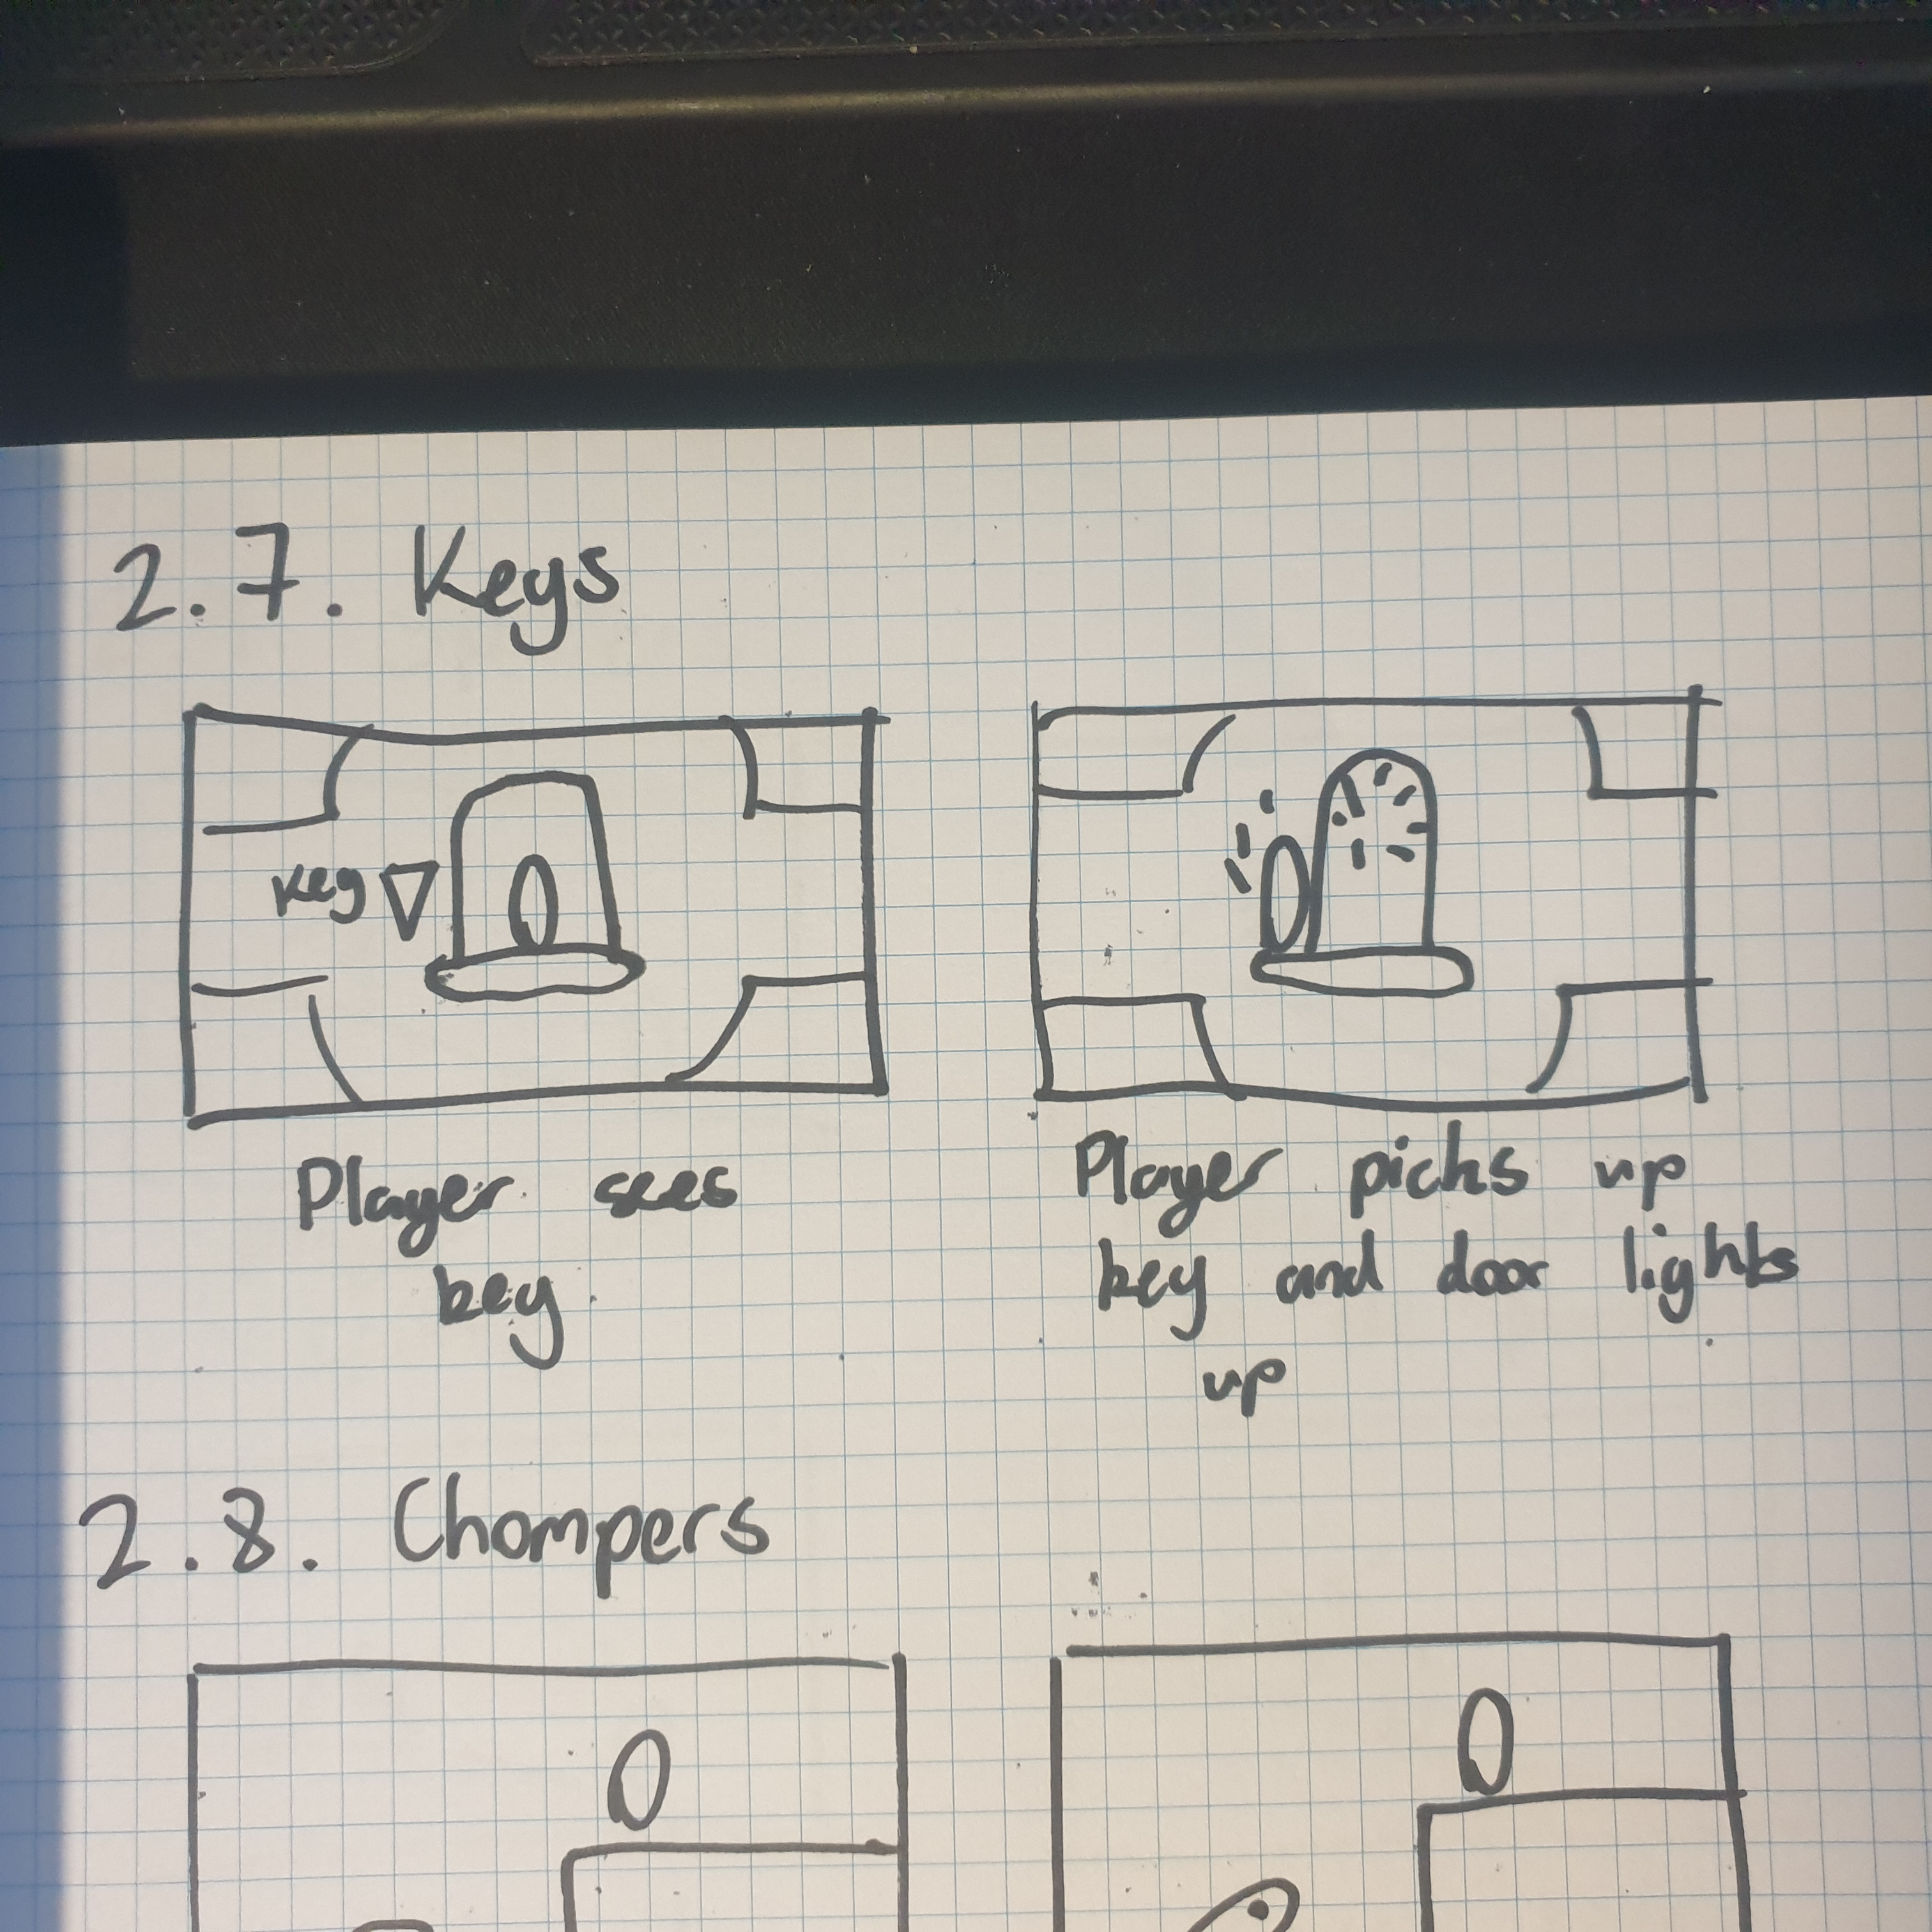 2.7. Keys
Key
Player sees
key.
Player picks up
key and door lights
up
2.8. Chompers